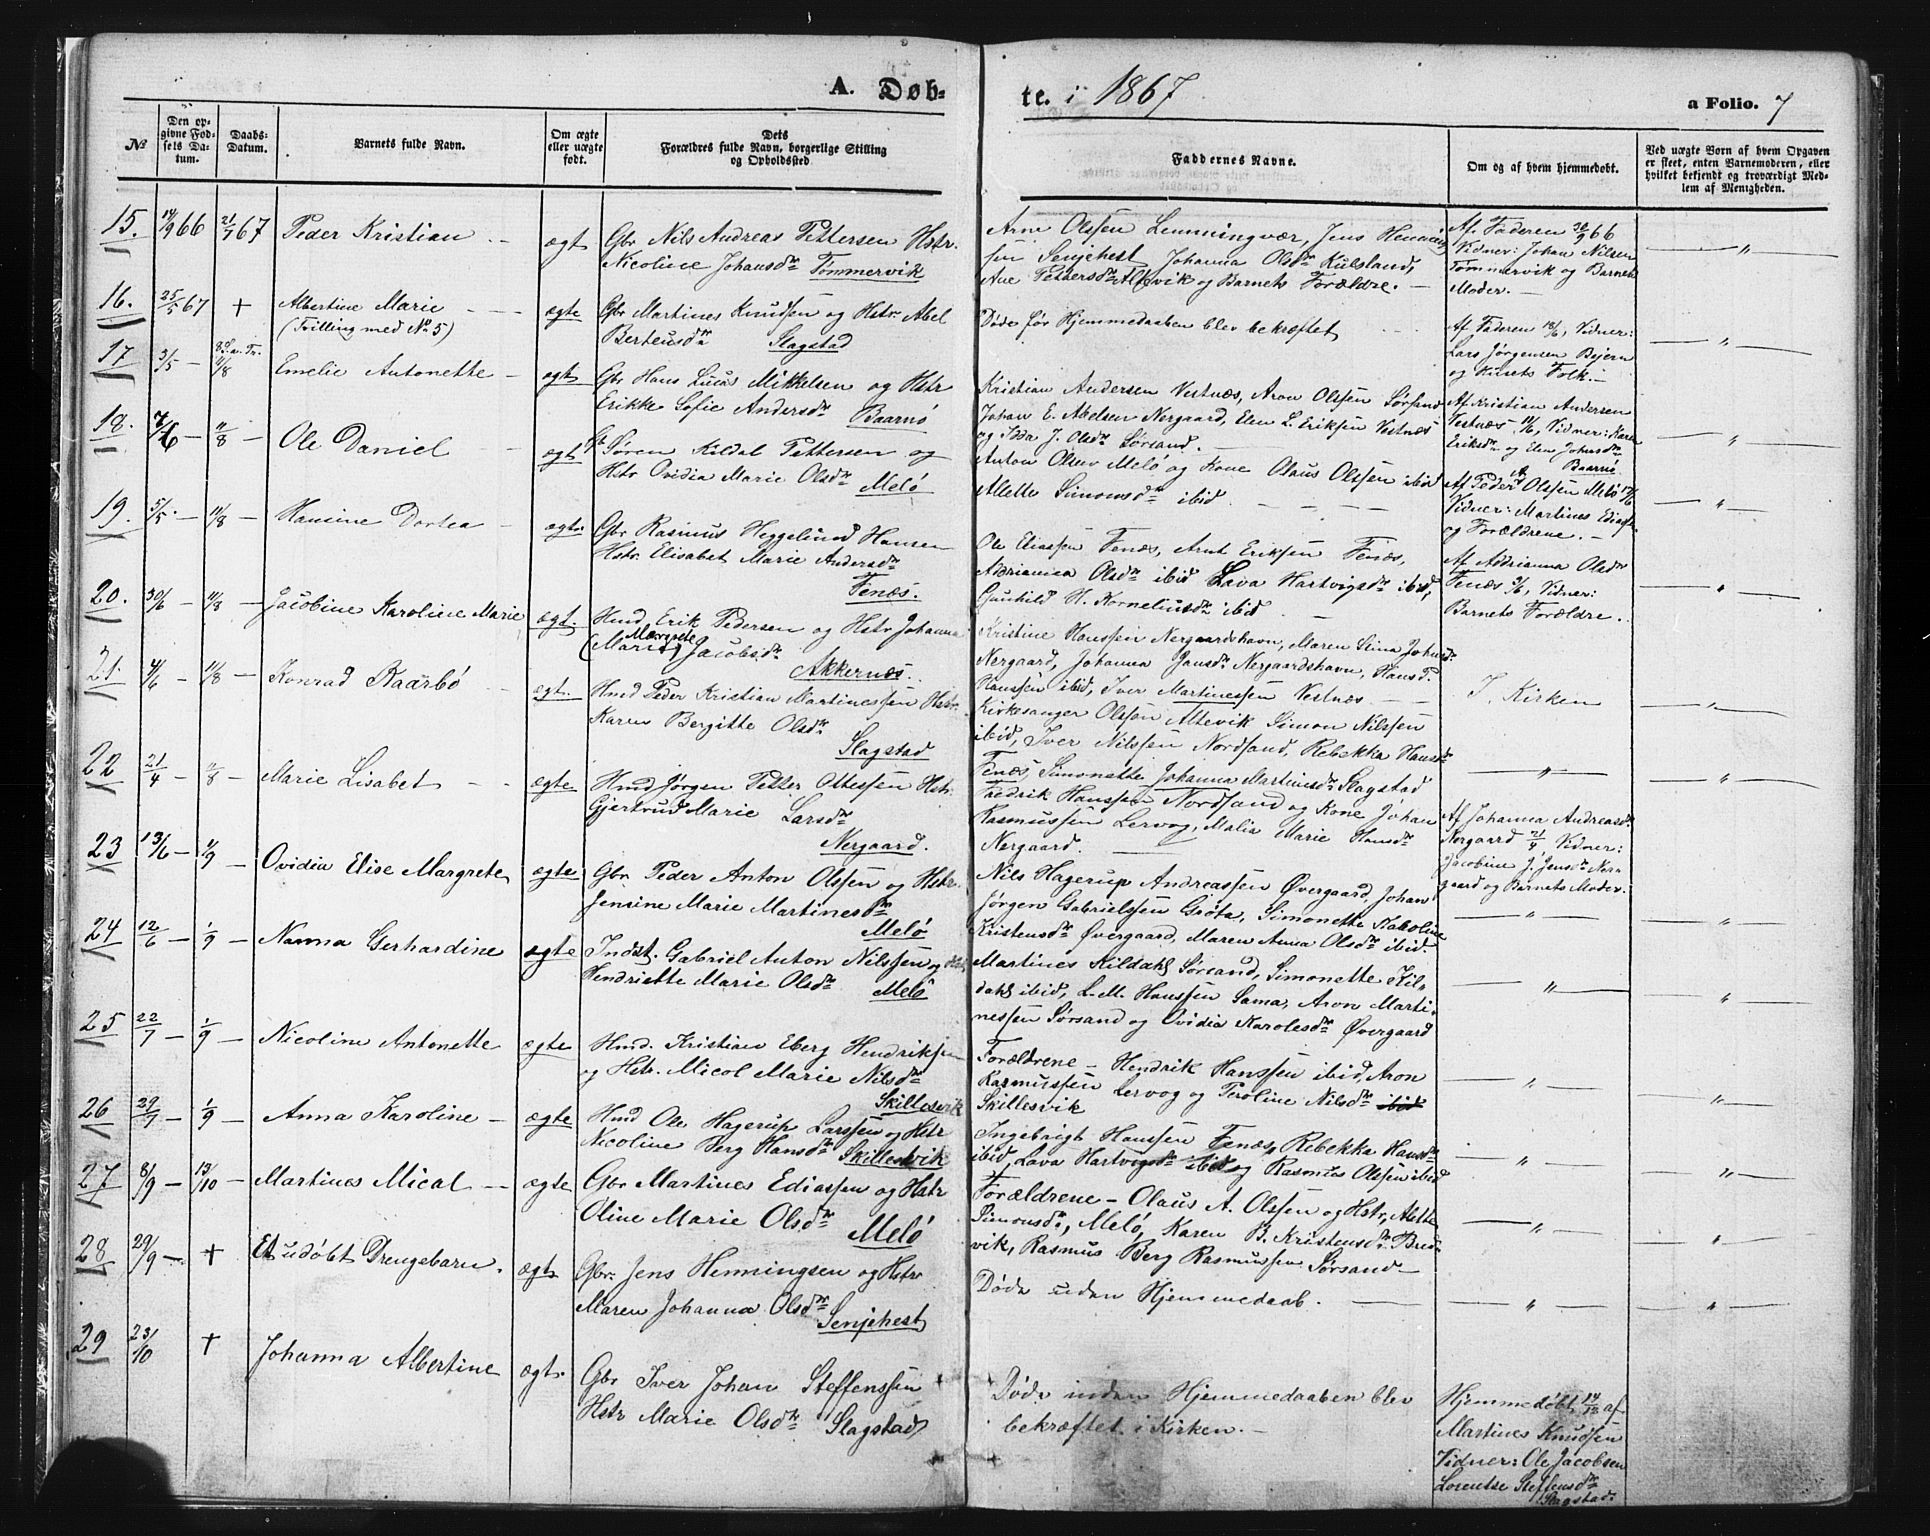 A. Døb-
te. i 1867
a Folio. 7
№
Den opgivne Fødsels Datum.
Daabs-Datum.
Barnets fulde Navn.
Om ægte eller uægte født.
Dets Forældres fulde Navn, borgerlige Stilling og Opholdssted.
Faddernes Navne.
Om og af hvem hjemmedøbt.
Ved uægte Børn af hvem Opgaven er skeet, enten Barnemoderen, eller hvilket bekjendt og troværdigt Medlem af Menigheden.
15. 14/9 66 21/7 67 Peder Kristian ægt Gbr Nils Andreas Pettersen Hstr.
Nicoline Johansdtr Tømmervik
Arne Olssen Lemmingvær, Jens Henning
sen Senjehest Johanna Olsdtr Külsland,
Ane Pettersdtr Altevik og Barnets Forældre. —
Af Faderen 30/9 66
Vidner: Johan Nilsen
Tømmervik og Barnets
Moder. —
16. 25/5 67 + Albertine Marie
(Tvilling med No 5)
ægte Gbr Martines Knudsen og Hstr Abel
Berteusdtr Slagstad
Døde før Hjemmedaaben blev bekræftet
Af Faderen 18/6, Vidner:
Lars Jørgensen Bejern
og Husets Folk. —
17 3/5 — 8 S. a. Tr. 11/8 Emelie Antonette — ægt Gbr Hans Lucas Mikkelsen og Hstr
Erikke Sofie Andersdtr Baarnø
Kristian Andersen Vestnæs, Aron Olssen Sørsand
Johan E. Abelsen Nergaard, Elen L. Eriksen Vestnæs
og Ida J. Olsdtr Sørsand. —
Af Kristian Andersen
Vestnæs 11/6, Vidner: Karen
Eriksdtr og Elene Johnsdtr
Baarnø.
18. 7/6 — 11/8 — Ole Daniel ægt Gb Søren Kildal Pettersen og
Hstr Ovidia Marie Olsdtr Melø
Anton Olsen Melø og Kone Olaus Olssen ibid
Alette Simonsdtr ibid.
Af Peder A Olssen Melø 17/6
Vidner: Martines Ediass.
og Forældrene. —
19. 5/5 — 11/8 — Hansine Dortea — ægte. Gbr Rasmus Heggelund Hansen
Hstr. Elisabet Marie Andersdtr
Fenæs.
Ole Eliassen Fenæs, Arnt Eriksen Fenæs,
Adrianna Olsdtr ibid Lava Hartvigsdtr ibid,
Gunhild H. Korneliusdtr ibid
Af Adrianna Olsdtr
Fenæs 9/6, Vidner:
Barnets Forældre.
20. 30/6 — 11/8 — Jacobine Karoline Marie ægt. Hmd Erik Pedersen og Hstr Johanna
Margrete
(Marie) Jacobsdtr
Akkernæs.
Kristine Hanssen Nergaardshavn, Maren Stina Johnsdtr
Nergaard, Johanna Jansdtr Nergaardshavn, Hans P.
Hanssen ibid, Iver Martinessen Vestnæs —
I Kirken
21. 4/6 — 11/8 — Konrad Kaarbø ægt. Hmd Peder Kristian Martinessen Hstr.
Karen Bergitte Olsdtr
Slagstad
Kirkesanger Olssen Altevik Simon Nilssen
ibid, Iver Nilssen Nordsand, Rebekka Hansdtr
Fenæs, Simonette Johanna Martinusdtr Slagstad
22 21/4 — 11/8 — Marie Lisabet ægte Hmd Jørgen Petter Ottesen Hstr.
Gjertrud Marie Larsdtr
Nergaard.
Fredrik Hanssen Nordsand og Kone Johan
Rasmussen Lervog, Malia Marie Hansdtr
Nergaard.
Af Johanna Andreasdtr
Nergaard 21/4 Vidner:
Jacobine J. Jensdtr Ner-
gaard og Barnets Moder.
23 13/6 — 1/9 — Ovidia Elise Margrete ægte Gbr. Peder Anton Olssen og Hstr.
Jensine Marie Martinesdtr
Melø
Nils Hagerup Andreassen Øvergaard, Johan
Jørgen Gabrielssen Grøta, Simonette Karoline
Kristensdtr Øvergaard, Maren Anna Olsdtr ibid.
24 12/6 — 1/9 — Nanna Gerhardine ægte Indst. Gabriel Anton Nilssen og Hstr
Hendriette Marie Olsdtr Melø
Martines Kildahl Sørsand, Simonette Kil-
dahl ibid, L. M. Hanssen Sama, Aron Marti-
nessen Sørsand og Ovidia Karolesdtr Øvergaard
25 22/7 — 1/9 — Nicoline Antonette ægte Hmd. Kristian Eberg Hendriksen
og Hstr. Micol Marie Nilsdtr
Skillesvik
Forældrene — Hendrik Hanssen ibid, Aron
Rasmussen Lervog og Peroline Nilsdtr ibid
Skillesvik
26 29/7 — 1/9 — Anna Karoline — ægte Hmd Ole Hagerup Larssen og Hstr
Nicoline Berg Hansdtr Skillesvik
Ingebrigt Hanssen Fenæs, Rebekka Hansdtr
ibid, Lava Hartvigsdtr ibid og Rasmus Olssen ibid
27 8/9 — 13/10 — Martines Mical — ægte Gbr Martines Ediassen og Hstr
Oline Marie Olsdtr Melø
Forældrene — Olaus A. Olssen og Hstr, Alette
Simonsdtr, Melø, Karen B. Kristensdtr Bred-
vik, Rasmus Berg Rasmussen Sørsand —
28 29/9 — + Et udøbt Drengebarn. ægt. Gbr. Jens Henningsen og Hstr
Maren Johanna Olsdtr Senjehest
Døde uden Hjemmedaab. —
29 23/10 + Johanna Albertine ægt. Gbr Iver Johan Steffenssen
Hstr Marie Olsdtr Slagstad
Døde inden Hjemmedaaben blev
bekræftet i Kirken. —
Hjemmedøbt, 14/12 af
Martines Knudsen
Vidner: Ole Jacobsen
Lorentse Steffensdtr
Slagstad.